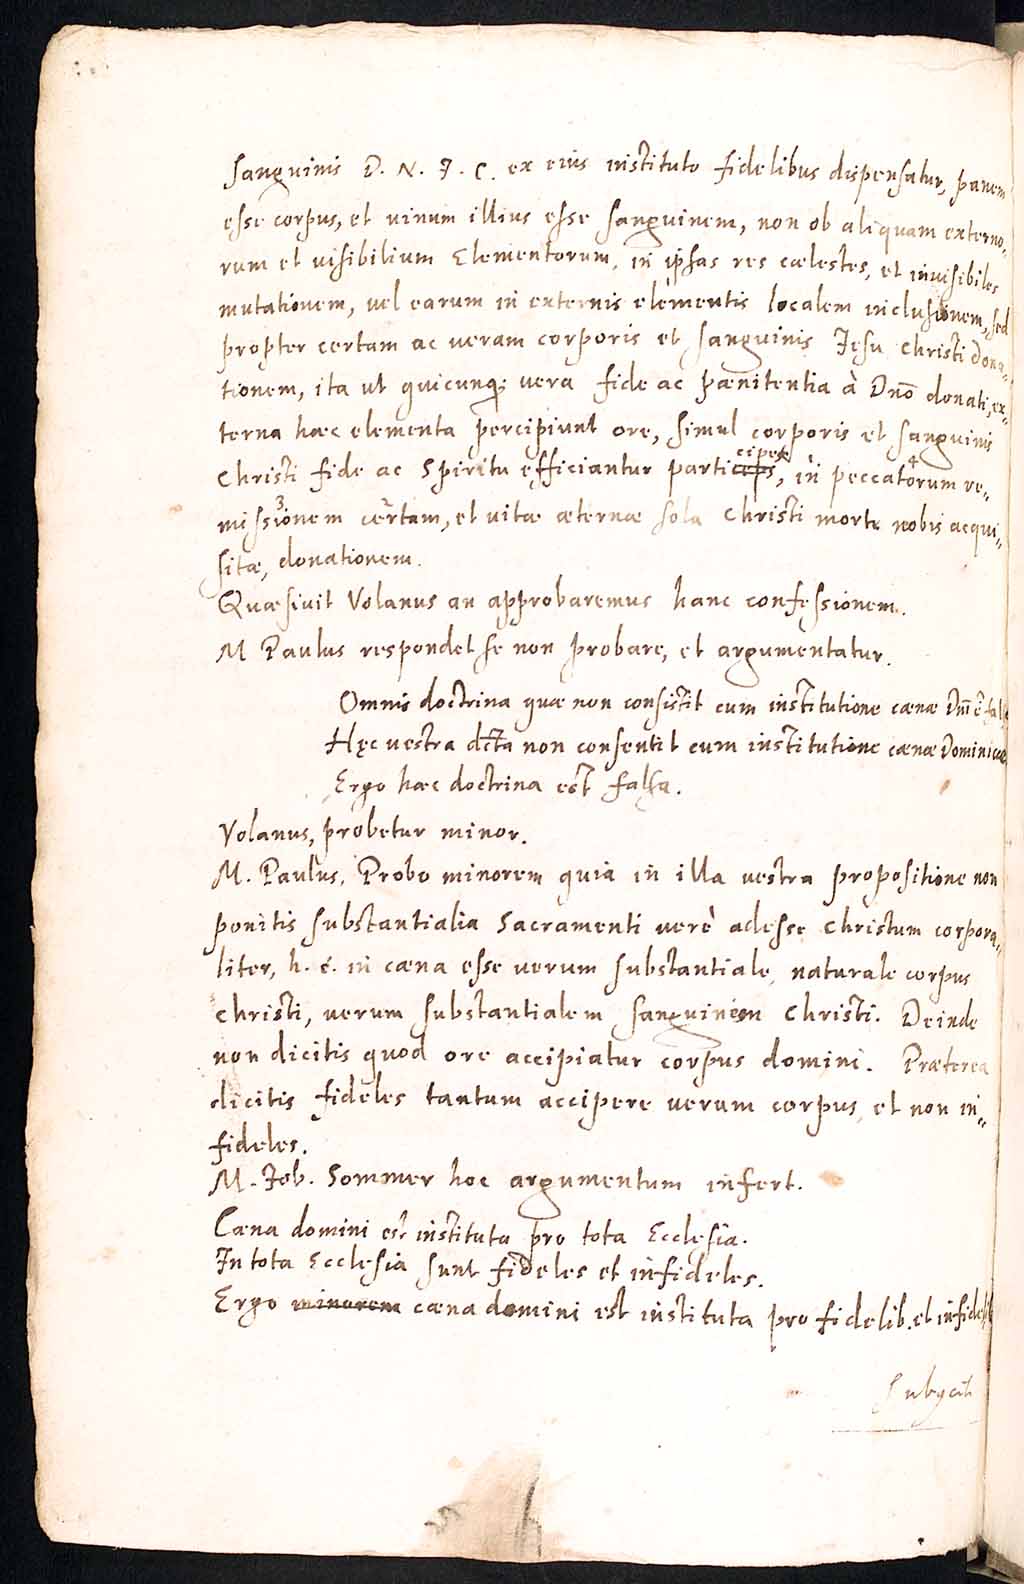 sanguinis D. N. J. C. ex eius instituto fidelibus dispensatur, panem
esse corpus, et vinum illius esse sanguinem, non ob aliquam externo„
rum et visibilium Elementorum, in ipsas res cælestes, et invisibiles
mutationem, vel earum in externis elementis localem inclusionem, sed
propter certam ac veram corporis et sanguinis Jesu Christi Dona„
tionem, ita ut quicunq; vera fide ac pænitentia à Dn̄o donati, ex„
terna hæc elementa percipiunt ore, simul corporis et sanguinis
Christi fide ac Spiritu efficiantur particips cipes, in peccatorum 4 re„
missionem 3 certam, et vitæ æternæ sola Christi morte nobis acqui„
sitæ, donationem.
Quæsivit Volanus an approbaremus hanc confessionem.
M Paulus respondet se non probare, et argumentatur.
Omnis doctrina quæ non consistit cum institutione cænæ Dn̄i ē
Hęc vestra dcta non consentit cum institutione cænæ Dominicæ
Ergo hæc doctrina est falsa.
Volanus, probetur minor.
M. Paulus, Probo minorem quia in illa vestra propositione non
ponitis substantialia Sacramenti verè adesse Christum corpora„
liter, h. é. in cæna esse verum substantiale, naturale corpus
Christi, verum substantialem sanguinem Christi. Deinde
non dicitis quod ore accipiatur corpus domini. Præterea
dicitis fideles tantum accipere verum corpus, et non in„
fideles.
M. Joh. Sommer hoc argumentum infert.
Cæna domini est instituta pro tota Ecclesia.
In tota Ecclesia sunt fideles et infideles.
Ergo minorem cæna domini est instituta pro fidelib. et infidelib
Subycit